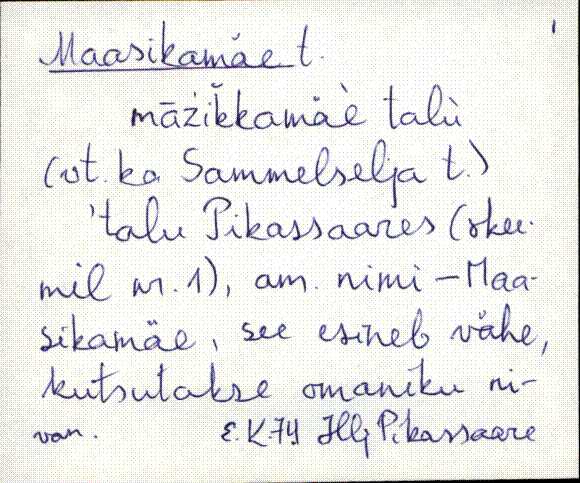 Maasikamäe t.
māžik̆kamäè talù
(vt. ka Sammelselja t.)
'talu Pikassaares (skee-
mil nr. 1), am. nimi – Maa-
sikamäe, see esineb vähe,
kutsutakse omaniku ni-
E. K. 74 Pikassaare